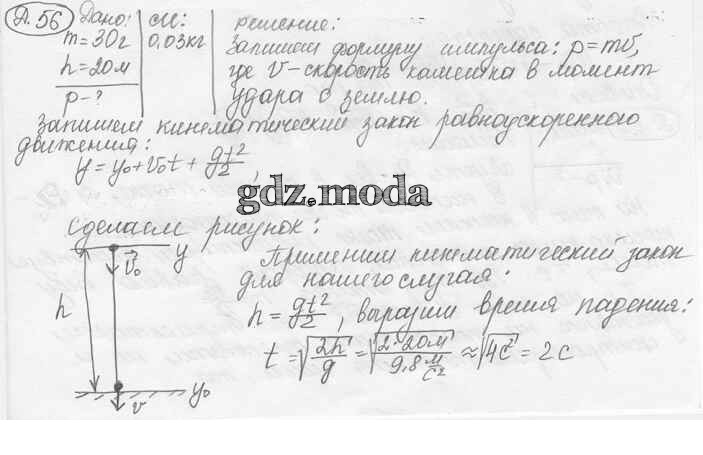 Д. 56
Дано: СИ: Решение:
m = 30г 0,03кг Запишем формулу импульса: p = mv,
h = 20м где v - скорость камешка в момент
p - ? удара о землю.
Запишем кинематический закон равноускоренного
движения:
y = y₀ + v₀t + gt²/2,
gdz.moda
Сделаем рисунок:
y Применим кинематический закон
v₀ для нашего случая:
h h = gt²/2, выразим время падения:
t = √(2h/g) = √(2·20м / 9,8 м/с²) ≈ √(4с²) = 2с
y₀
v